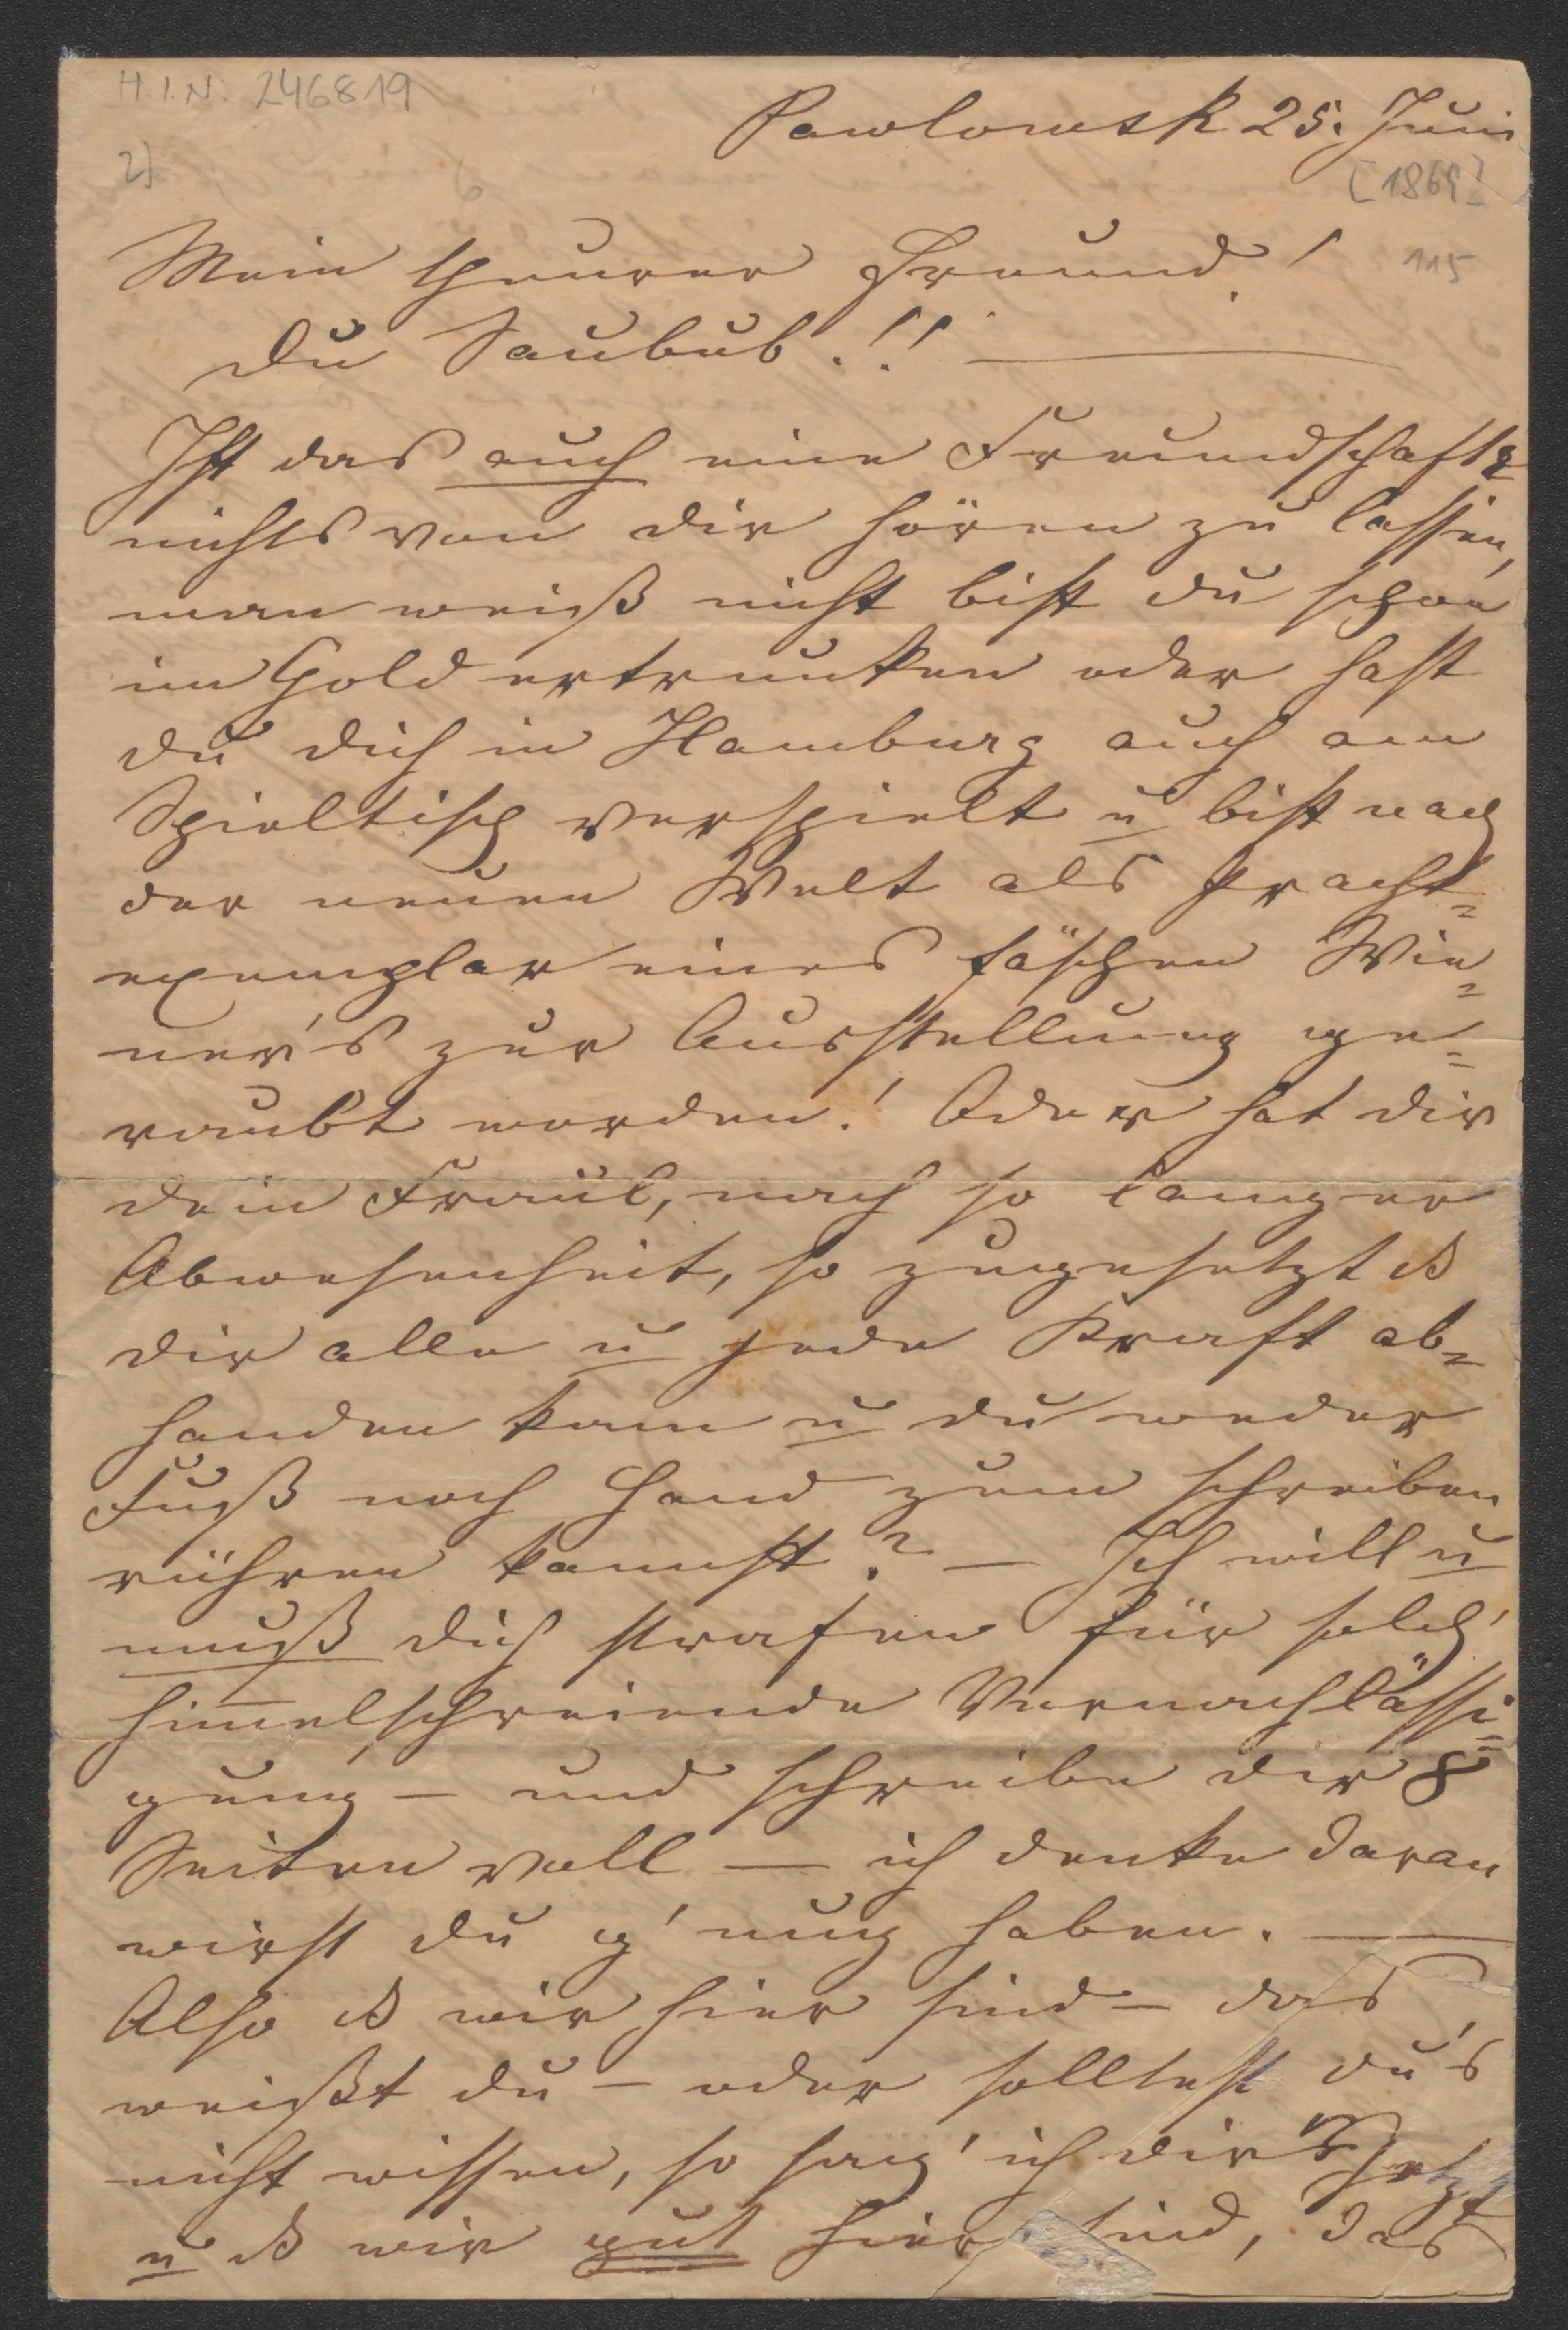 H.I.N. 246819
Pawlowsk 25. Juni
2)
[1869]
Mein theurer Freund!
115
Du Saubub!!
Ist das auch eine Freundschaft
nichts von dir hören zu lassen,
man weiß nicht bist du schon
im Gold ertrunken oder hast
du dich in Hamburg auch am
Spieltisch verspielt u bist nach
der neuen Welt als Pracht=
exemplar eines föschen Wie=
ner's zur Ausstellung ge=
raubt worden! Oder hat dir
dein Fraul, nach so langer
Abwesenheit, so zugesetzt ds
dir alle u jede Kraft ab=
handen kam u du weder
Fuß noch Hand zum schreiben
rühren kannst? — Ich will u
muß dich strafen für solch'
him̅elschreiende Vernachlässi=
gung — und schreibe dir 8
Seiten voll — ich denke daran
wirst du g'nug haben. —
Also ds wir hier sind — das
weißt du — oder solltest du's
nicht wissen, so sag' ich dir's jetzt
u ds wir gut hier sind, das